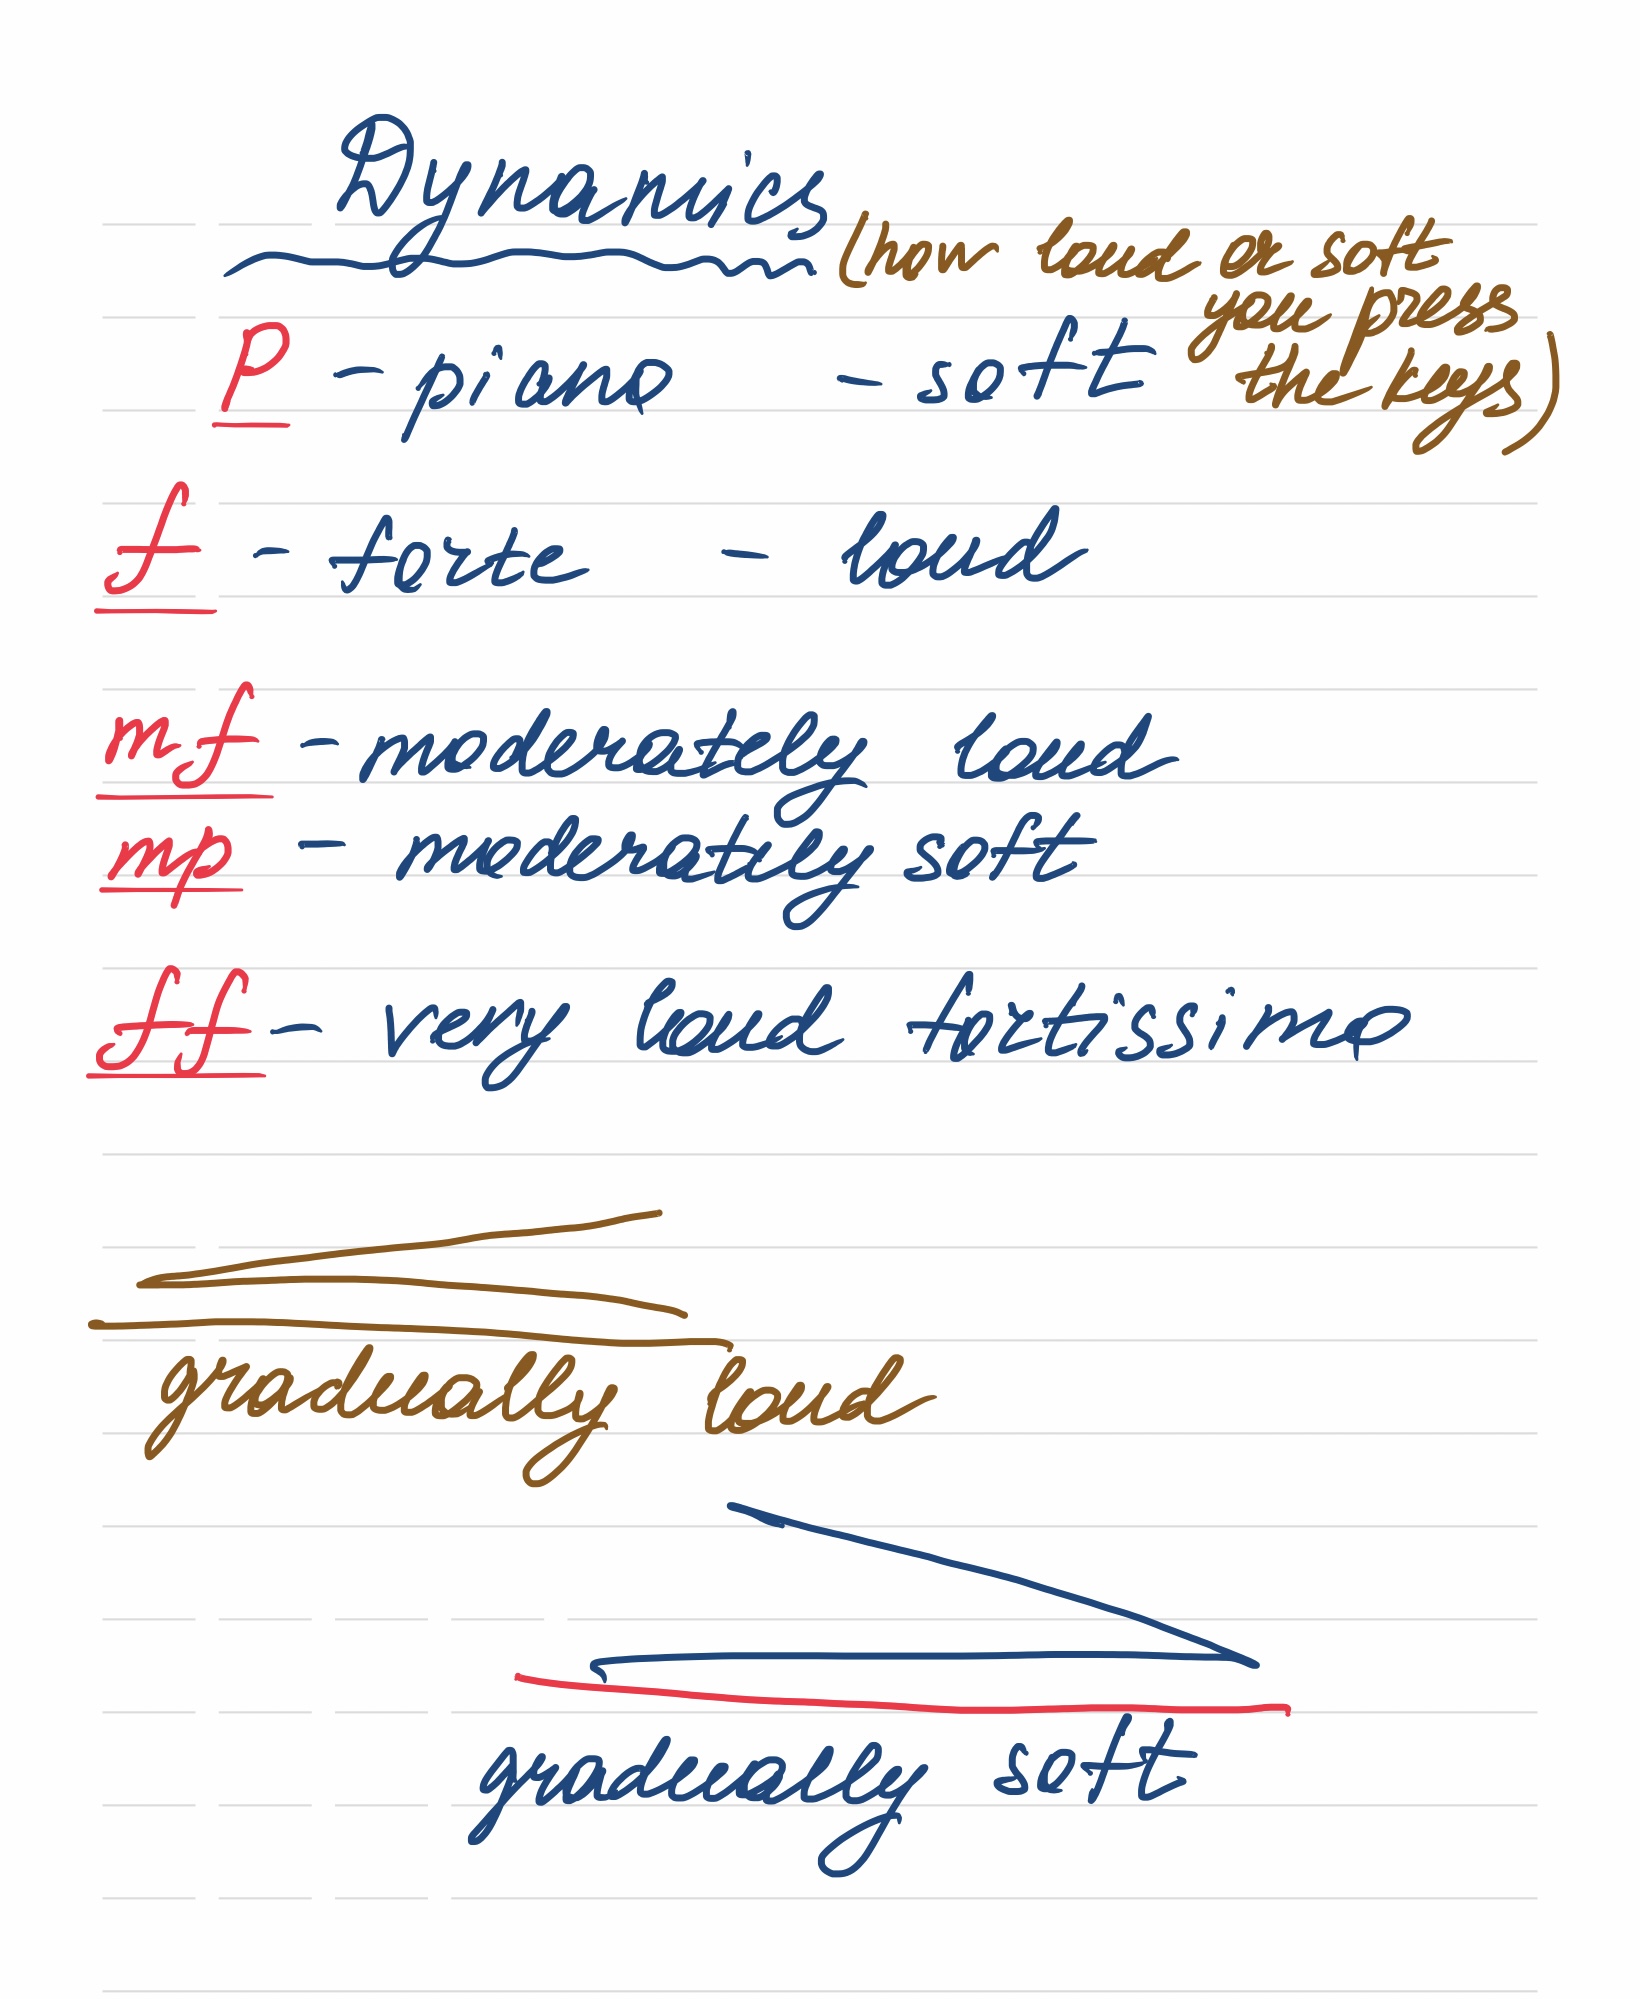 Dynamics
(how loud or soft
you press
the keys)
p - piano - soft
f - forte - loud
mf - moderately loud
mp - moderatily soft
ff - very loud fortissimo
gradually loud
gradually soft